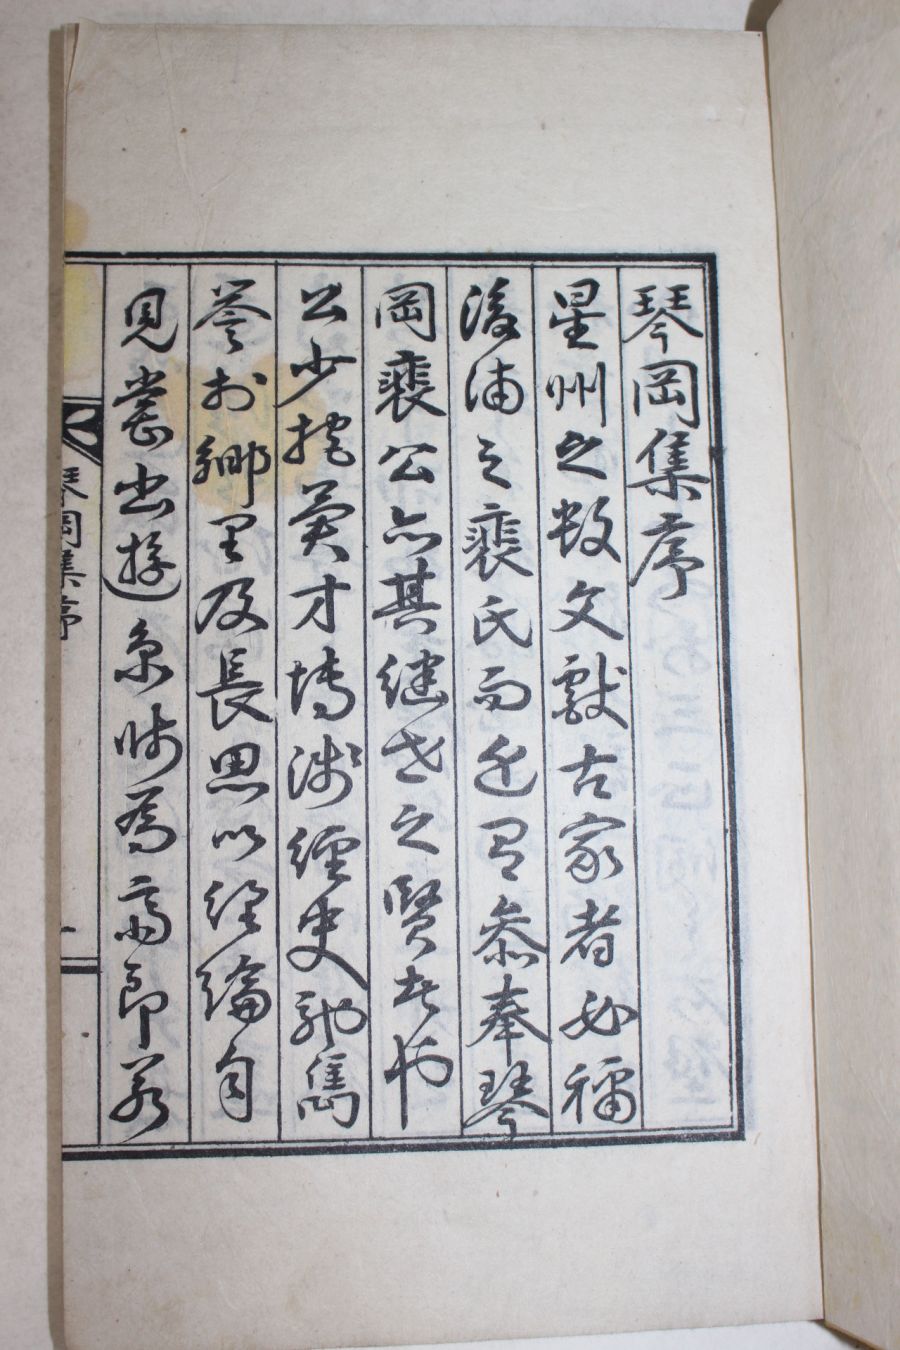 琴岡集序
星州之数文獻古家者必稱
後浦之裵氏而近有叅奉琴
岡裵公亦其継世之賢者也
公少抱英才博涉經史馳雋
譽於鄉里及長思以經綸自
見嘗出遊京師爲齋郎
琴岡集序